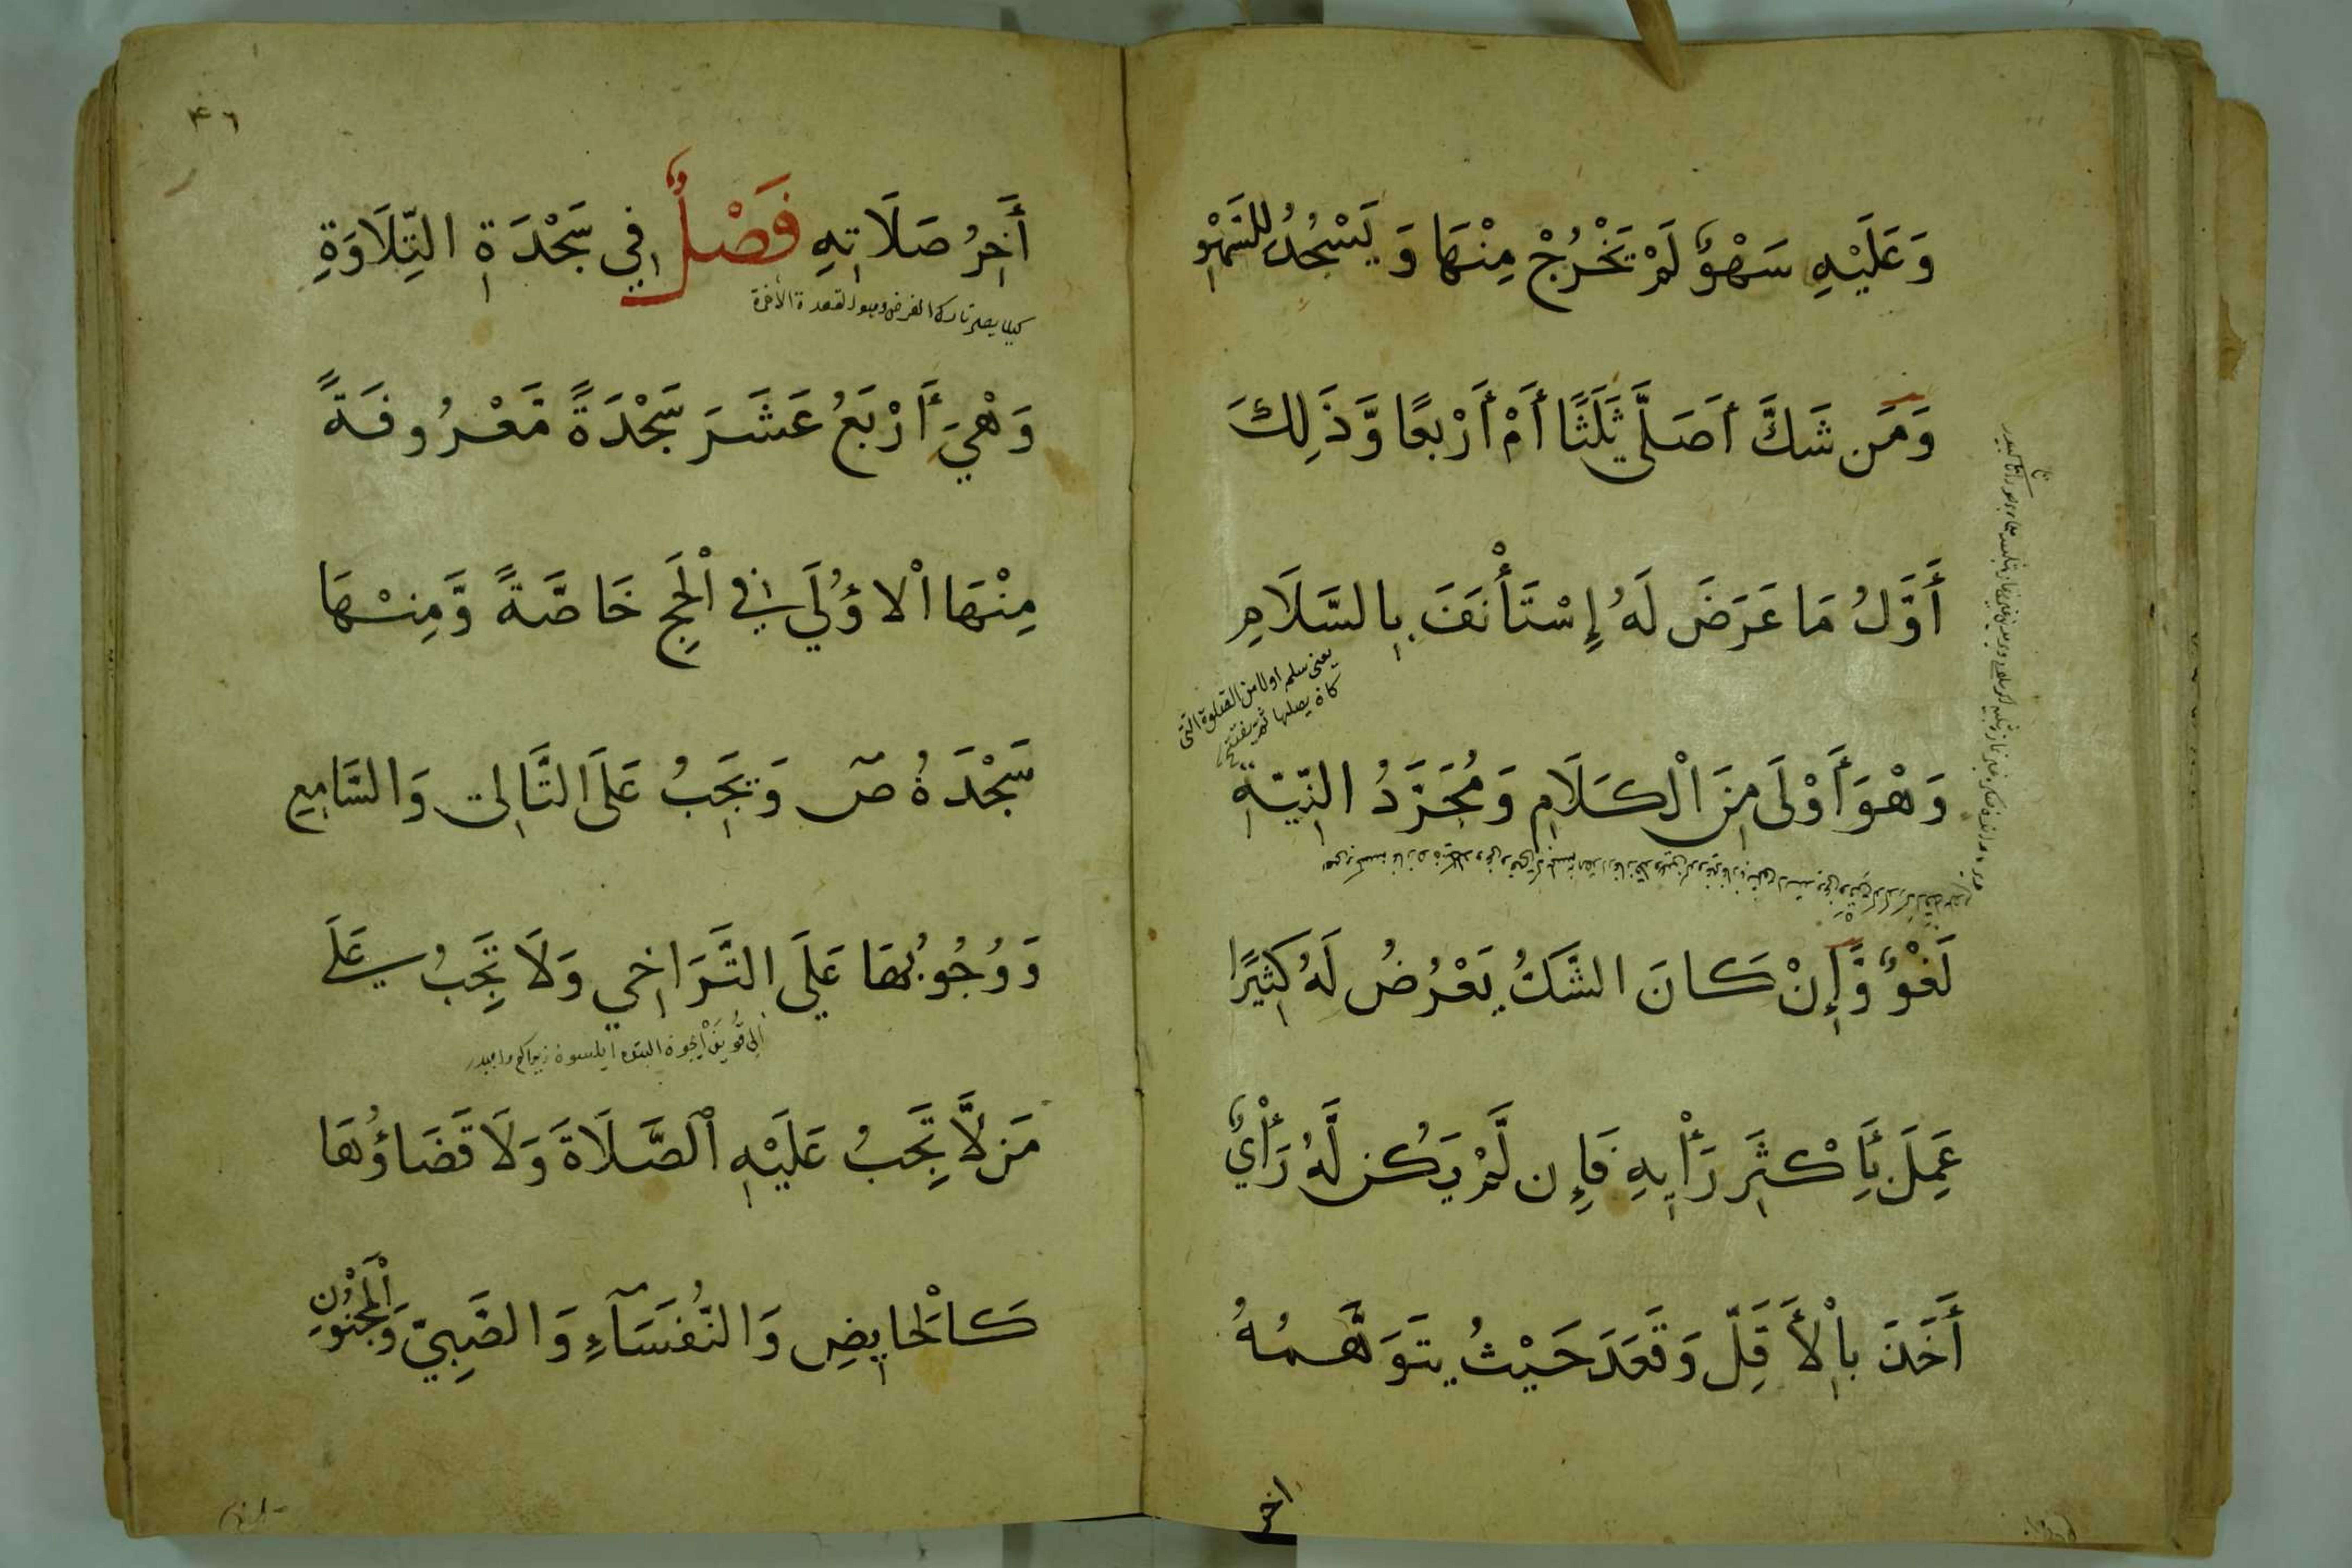 وَعَلَيْهِ سَهْوٌ لَمْ يَخْرُجْ مِنْهَا وَيَسْجُدُ لِلسَّهْوِ
وَمَن شَكَّ أَصَلَّى ثَلَثًا أَمْ أَرْبعًا وَّذَلِكَ
أَوَّلُ مَا عَرَضَ لَهُ إِسْتَأْنَفَ بِالسَّلَامِ
يعنى سلم اولا من الصلوة التى
كان يصليها ثم يفتتح
وَهْوَ أَوْلَى مِنَ الْكَلَامِ وَمُجَرَّدُ النِّيَّةِ
لَغْوٌ وَّإِنْ كَانَ الشَّكُّ يَعْرُضُ لَهُ كَثِيرًا
عَمِلَ بِأَكْثَرِ رَأْيِهِ فَإِن لَّمْ يَكُن لَّهُ رَأْيٌ
أَخَذَ بِالْأَقَلِّ وَقَعَدَ حَيْثُ يَتَوَهَّمُهُ
اخر
٤٦
أَخِرُ صَلَاتِهِ فَصْلٌ فِي سَجْدَةِ التِّلَاوَةِ
كيلا يصير تارك الفرض وهو القعدة الأخرة
وَهْيَ أَرْبَعُ عَشَرَ سَجْدَةً مَّعْرُوفَةً
مِنْهَا الْاؤُلَى فِي الْحَجِّ خَاصَّةً وَّمِنْهَا
سَجْدَةُ صٓ وَيَجِبُ عَلَى التَّالِى وَالسَّامِعِ
وَوُجُوبُهَا عَلَى التَّرَاخِي وَلَا تَجِبُ عَلَى
مَن لَّا تَجِبُ عَلَيْهِ الصَّلَاةَ وَلَا قَضَاؤُهَا
كَالْحَايِضِ وَالنُّفَسَآءِ وَالصَّبِيِّ وَالْمَجْنُونِ